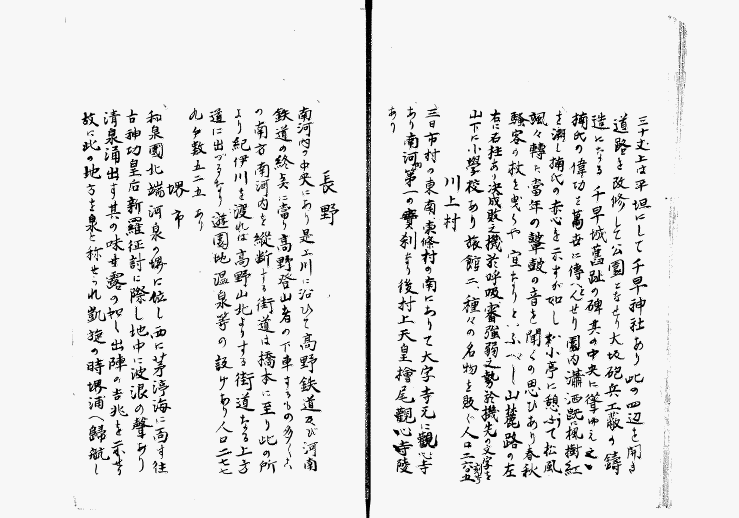 三十丈上は平坦にして千早神社あり此の四辺を開き
道路を改修して公園となせり大坂砲兵工廠の鋳
造になる千早城舊趾の碑其の中央に聳ゆえ之
楠氏の偉功を萬世に傳へんとせり園内瀟洒既に楓樹紅
を潮し楠氏の赤心を示すが如し小亭に憩ふて松風
颯々轉た當年の鼙鼓の音を聞くの思ひあり春秋
騒客の杖を曳くや宜なりといふべし山麓路の左
右に石柱あり決成敗之機於呼吸審強弱之勢於機先の文字を
山下に小學校あり旅館二、種々の名物を販ぐ人口二六五
川上村
三日市村の東南東條村の南にありて大字寺元に観心寺
あり南河第一の寶刹なり後村上天皇檜尾観心寺陵
あり
長野
南河内の中央にあり是土川に沿ひて高野鉄道及び河南
鉄道の終点に當り高野登山者の下車するもの多く
の南方南河内を縦断する街道は橋本に至り此の所
より紀伊川を渡れば高野山北よりする街道なる上方
道に出づるなり遊園地温泉等の設けあり人口二七七
九戸数五二五あり
堺市
和泉國北端河泉の堺に位し西に茅渟海に面す往
古神功皇后新羅征討に際し地中に波浪の聲あり
清泉涌出す其の味甘露の如し出陣の吉兆を示せり
故に此の地方を泉と称せられ凱旋の時堺浦へ歸航し